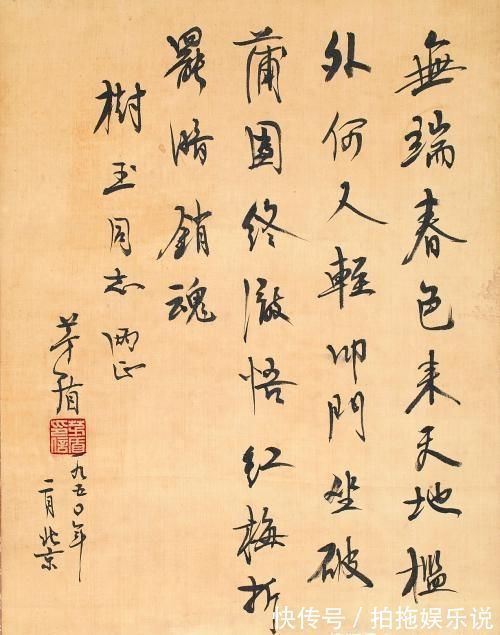 無端春色来天地檻
外何人輕叩門坐破
蒲團終澈悟紅梅折
罷暗銷魂
樹玉同志哂正
茅盾
茅盾印信
一九五〇年
二月北京
快传号／拍拖娱乐说